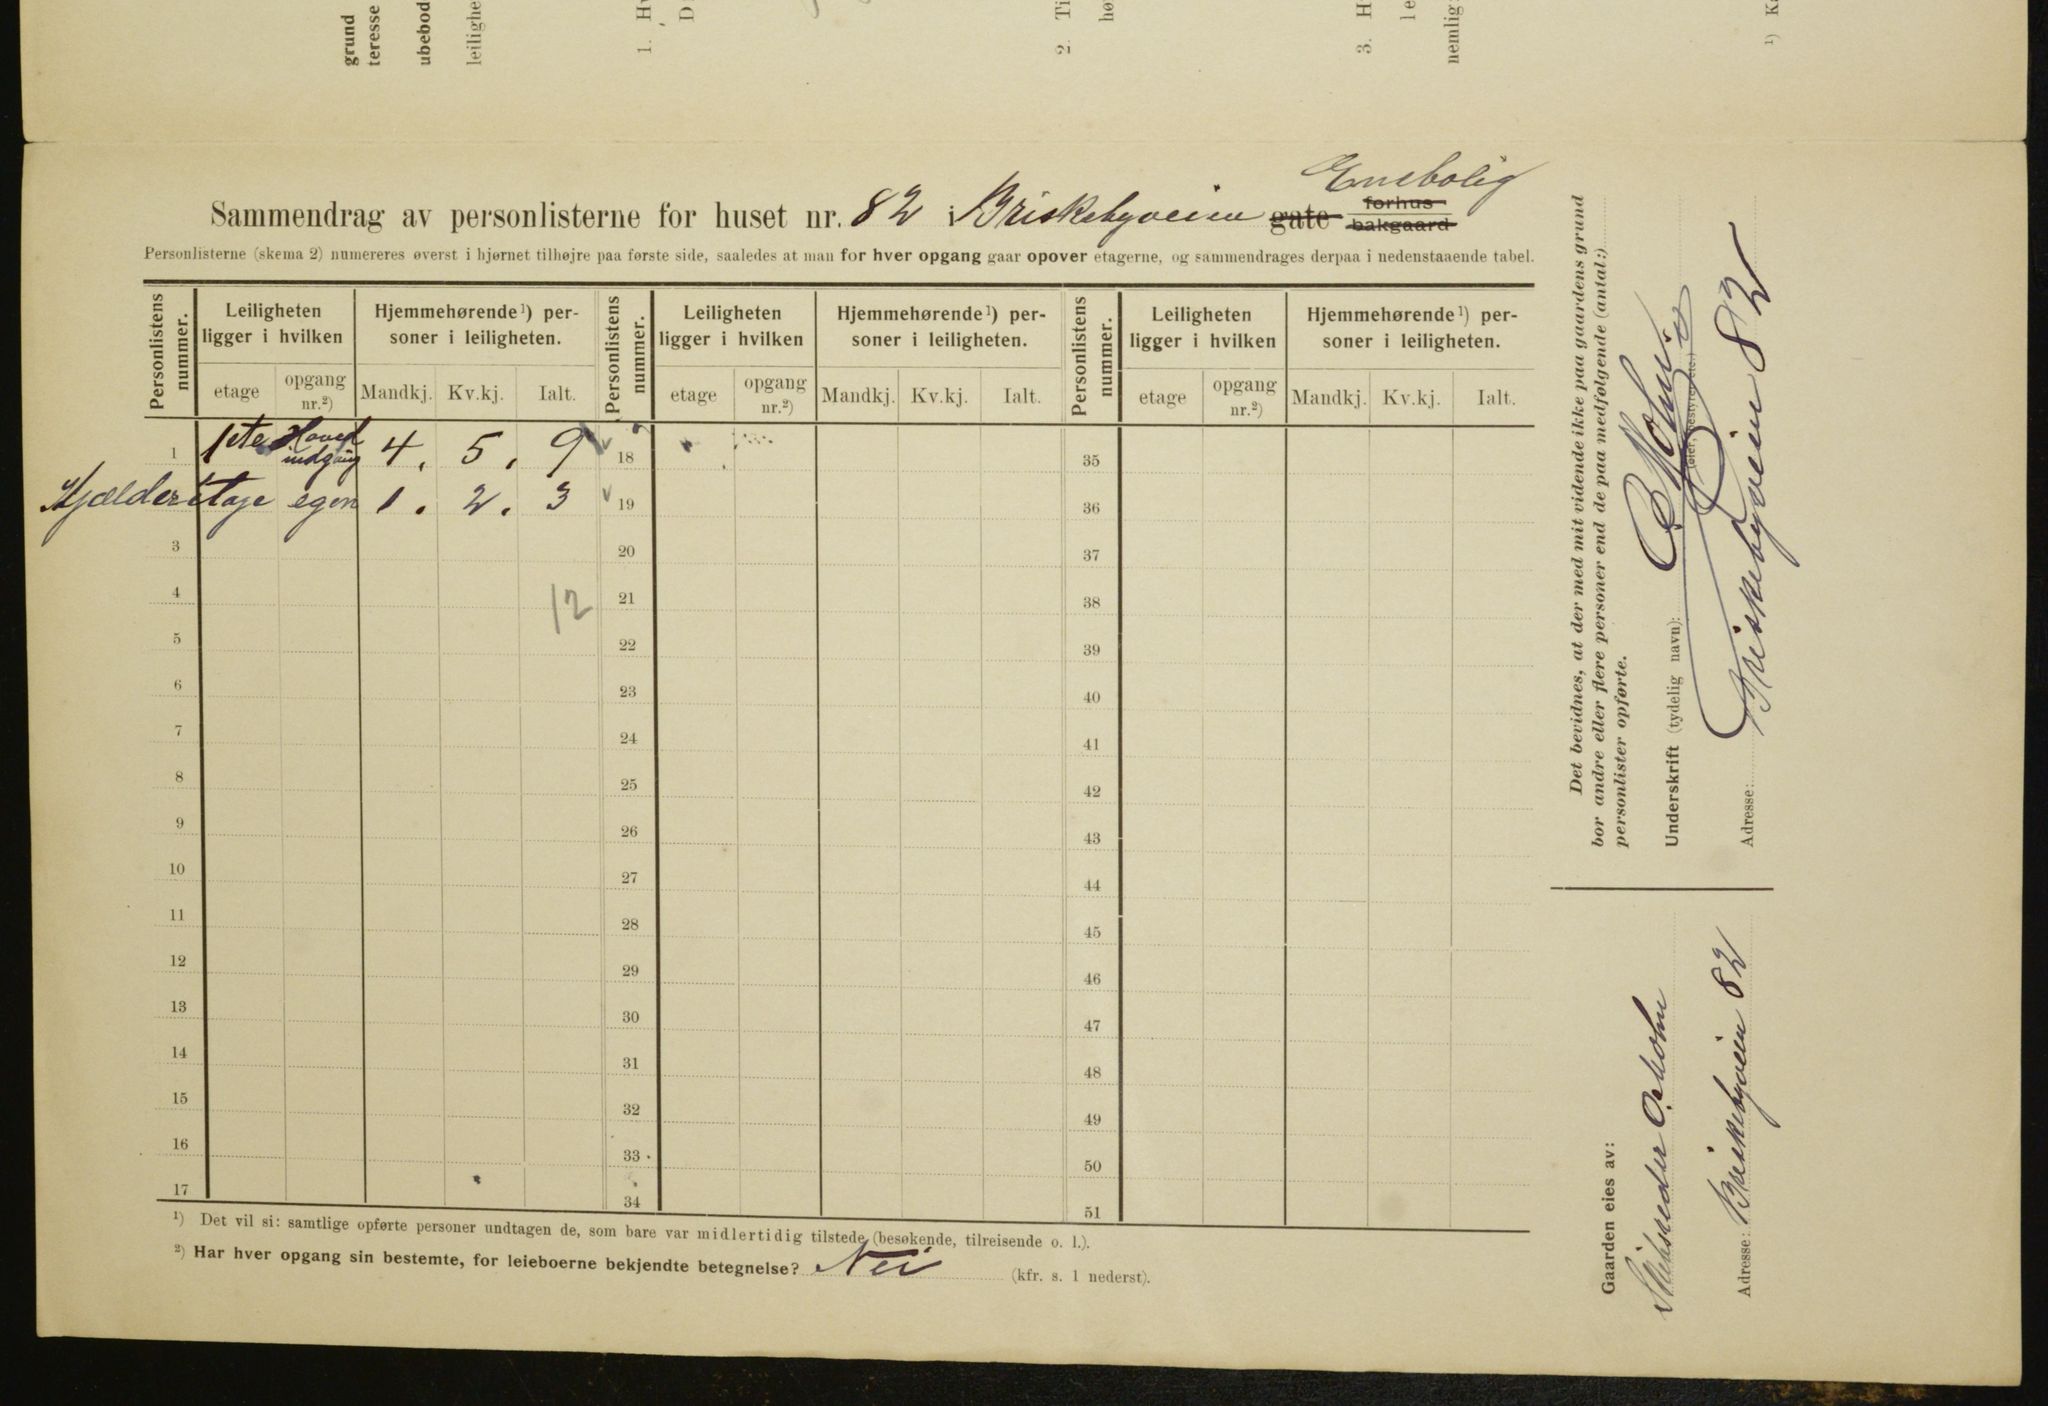 grund
teresse
ubebod
leilighe
1. Hv
D
2. Ti
hø
3. H
le
nemlig:
¹) K
Enebolig
Sammendrag av personlisterne for huset nr. 82 i Briskebyveien gate forhus
bakgaard
Personlisterne (skema 2) numereres øverst i hjørnet tilhøjre paa første side, saaledes at man for hver opgang gaar opover etagerne, og sammendrages derpaa i nedenstaaende tabel.
Personlistens nummer. Leiligheten ligger i hvilken Hjemmehørende¹) personer i leiligheten. Personlistens nummer. Leiligheten ligger i hvilken Hjemmehørende¹) personer i leiligheten. Personlistens nummer. Leiligheten ligger i hvilken Hjemmehørende¹) personer i leiligheten.
etage opgang nr.²) Mandkj. Kv.kj. Ialt. etage opgang nr.²) Mandkj. Kv.kj. Ialt. etage opgang nr.²) Mandkj. Kv.kj. Ialt.
1 1ste Hoved indgang 4. 5. 9 18 35
Kjælder etage egen 1. 2. 3 19 36
3 20 37
4 12 21 38
5 22 39
6 23 40
7 24 41
8 25 42
9 26 43
10 27 44
11 28 45
12 29 46
13 30 47
14 31 48
15 32 49
16 33 50
17 34 51
¹) Det vil si: samtlige opførte personer undtagen de, som bare var midlertidig tilstede (besøkende, tilreisende o. l.).
²) Har hver opgang sin bestemte, for leieboerne bekjendte betegnelse? Nei (kfr. s. 1 nederst).
Det bevidnes, at der med mit vidende ikke paa gaardens grund
bor andre eller flere personer end de paa medfølgende (antal:)
personlister opførte.
Underskrift (tydelig navn):
(eier, bestyrer etc.)
Adresse: Briskebyveien 82
Gaarden eies av:
Skibsreder O. Holm
Adresse: Briskebyveien 82